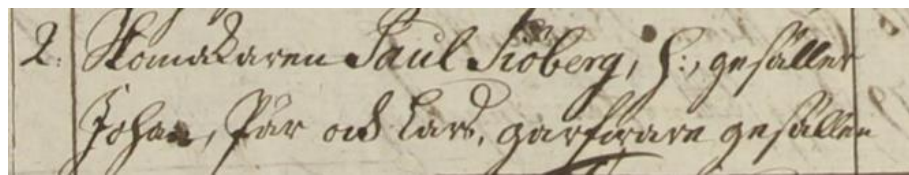 2. Skomakaren Paul Siöberg, H:, gesäller
Johan, Pär och Lars, garfvare gesällen